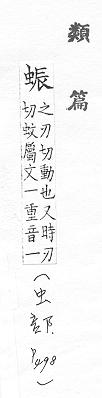 類篇
蜄
之刃切動也又時刃
切蚊屬文一重音一
(虫部 P498)